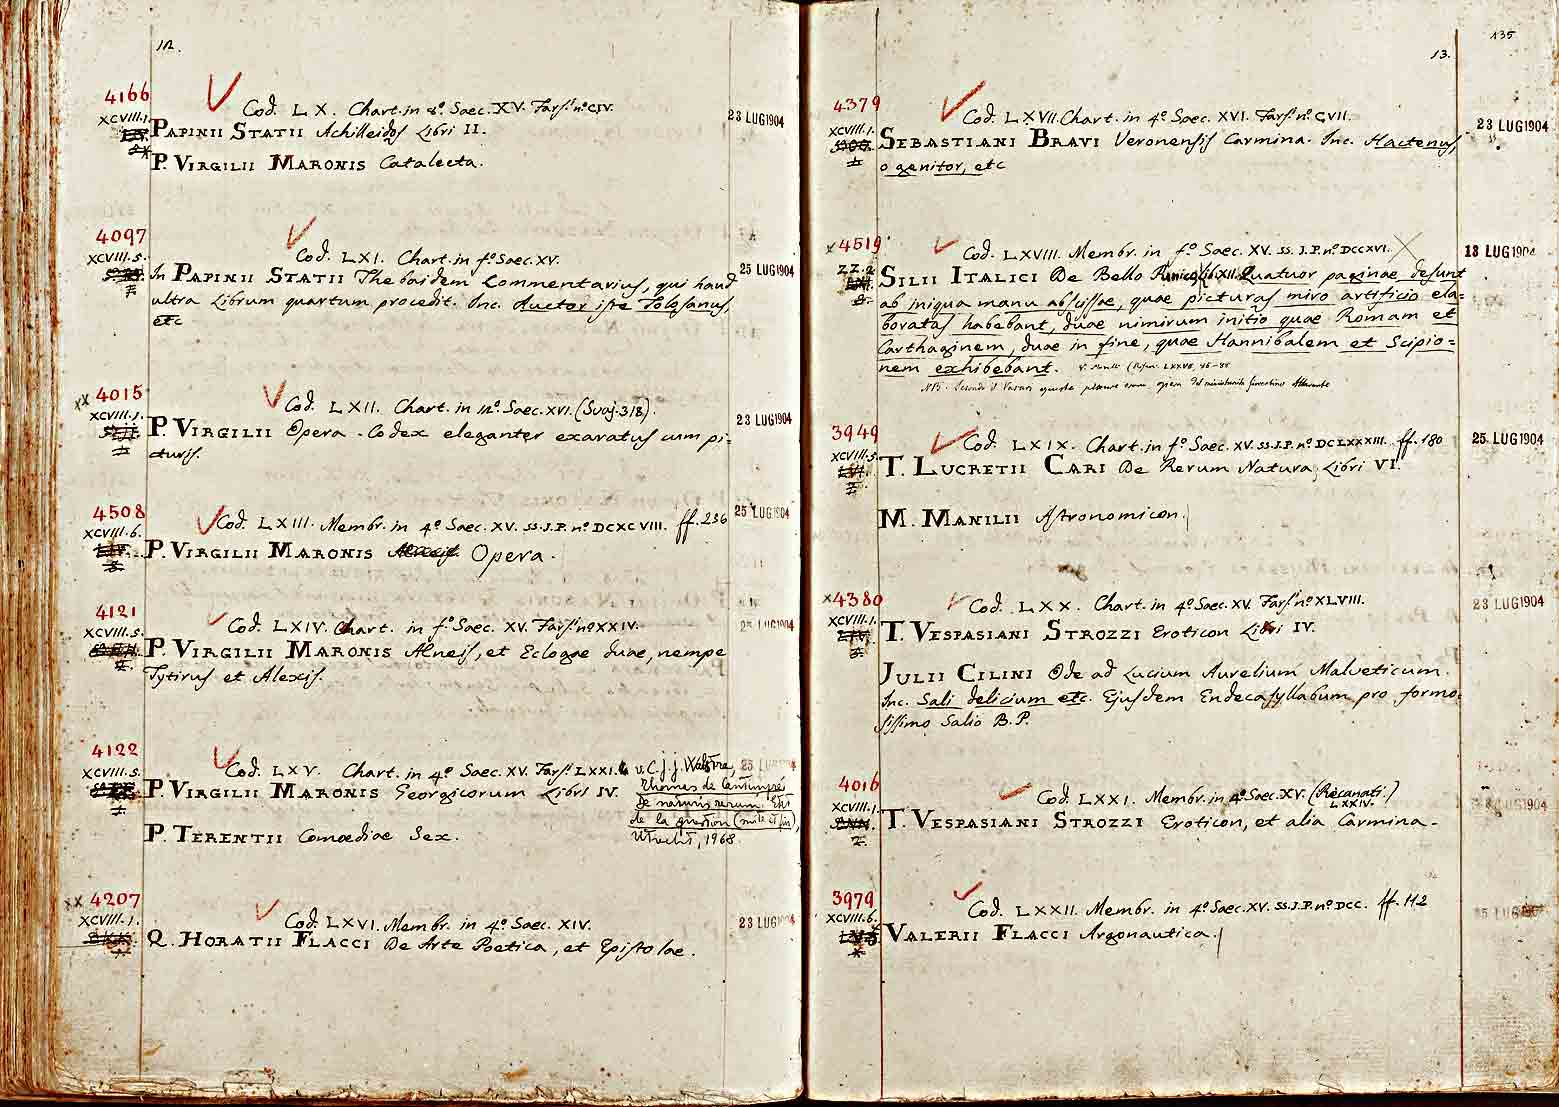 12.
4166
Cod. LX. Chart. in 8º. Saec. XV. Fars. nº CIV.
XCVIII.1.
23 LUG 1904
PAPINII STATII Achilleidos Libri II.
P. VIRGILII MARONIS Catalecta.
4097
Cod. LXI. Chart. in fº. Saec. XV.
XCVIII.5.
25 LUG 1904
In PAPINII STATII Thebaidem Commentarius, qui haud
ultra Librum quartum procedit. Inc. Auctor iste Tolosanus,
etc
xx 4015
Cod. LXII. Chart. in 12º. Saec. XVI. (Svaj. 318).
XCVIII.1.
23 LUG 1904
P. VIRGILII Opera. Codex eleganter exaratus cum pi=
cturis.
4508
Cod. LXIII. Membr. in 4º. Saec. XV. SS. J. P. nº DCXCVIII. ff. 236
XCVIII.6.
25 LUG 1904
P. VIRGILII MARONIS Opera.
4121
Cod. LXIV. Chart. in fº. Saec. XV. Fars. nº XXIV.
XCVIII.5.
25 LUG 1904
P. VIRGILII MARONIS Aeneis, et Eclogae duae, nempe
Tytirus et Alexis.
4122
Cod. LXV. Chart. in 4º. Saec. XV. Fars. LXXI.
XCVIII.5.
25 LUG 1904
P. VIRGILII MARONIS Georgicorum Libri IV.
v. C. J. J. Walstra,
Thomas de Cantimpré
de naturis rerum. Etat
de la question (suite et fin),
Utrecht, 1968.
P. TERENTII Comoediae Sex.
xx 4207
Cod. LXVI. Membr. in 4º. Saec. XIV.
XCVIII.1.
23 LUG 1904
Q. HORATII FLACCI De Arte Poetica, et Epistolae.
135
13.
4379
Cod. LXVII. Chart. in 4º. Saec. XVI. Fars. nº CVII.
XCVIII.1.
23 LUG 1904
SEBASTIANI BRAVI Veronensis Carmina. Inc. Hactenus,
o genitor, etc
x 4519
Cod. LXVIII. Membr. in fº. Saec. XV. SS. J. P. nº DCCXVI.
ZZ.2
18 LUG 1904
SILII ITALICI De Bello Punico libri XII. Quatuor paginae desunt
ab iniqua manu abscissae, quae picturas miro artificio ela=
boratas habebant, duae nimirum initio quae Romam et
Carthaginem, duae in fine, quae Hannibalem et Scipio=
nem exhibebant.
NB. Secondo il Vasari queste pitture erano opera del miniatore fiorentino Attavante
3949
Cod. LXIX. Chart. in fº. Saec. XV. SS. J. P. nº DCLXXXIII. ff. 180
XCVIII.5.
25 LUG 1904
T. LUCRETII CARI De Rerum Natura, Libri VI.
M. MANILII Astronomicon.
x 4380
Cod. LXX. Chart. in 4º. Saec. XV. Fars. nº XLVIII.
XCVIII.1.
23 LUG 1904
T. VESPASIANI STROZZI Eroticon Libri IV.
JULII CILINI Ode ad Lucium Aurelium Malveticum.
Inc. Sali delicium etc. Ejusdem Endecasyllabum pro formo=
sissimo Salio B. P.
4016
Cod. LXXI. Membr. in 4º. Saec. XV. (Recanati.)
LXXIV.
XCVIII.1.
LUG 1904
T. VESPASIANI STROZZI Eroticon, et alia Carmina.
3979
Cod. LXXII. Membr. in 4º. Saec. XV. SS. J. P. nº DCC. ff. 112
XCVIII.6.
25 LUG
VALERII FLACCI Argonautica.